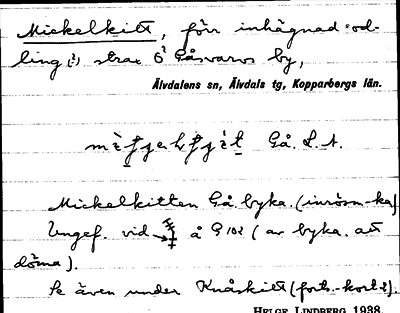 Mickelkitt, förr inhägnad od-
ling (?) strax ö Gåsvarvs by,
Älvdalens sn, Älvdals tg, Kopparbergs län.
Gå. L. A.
Mickelkitten Gå byka. (inrösn.-ka)
Ungef. vid å G 102 (av byka. att
döma).
Se även under Knåskitt (forts.-kort 2).
HELGE LINDBERG 1938.